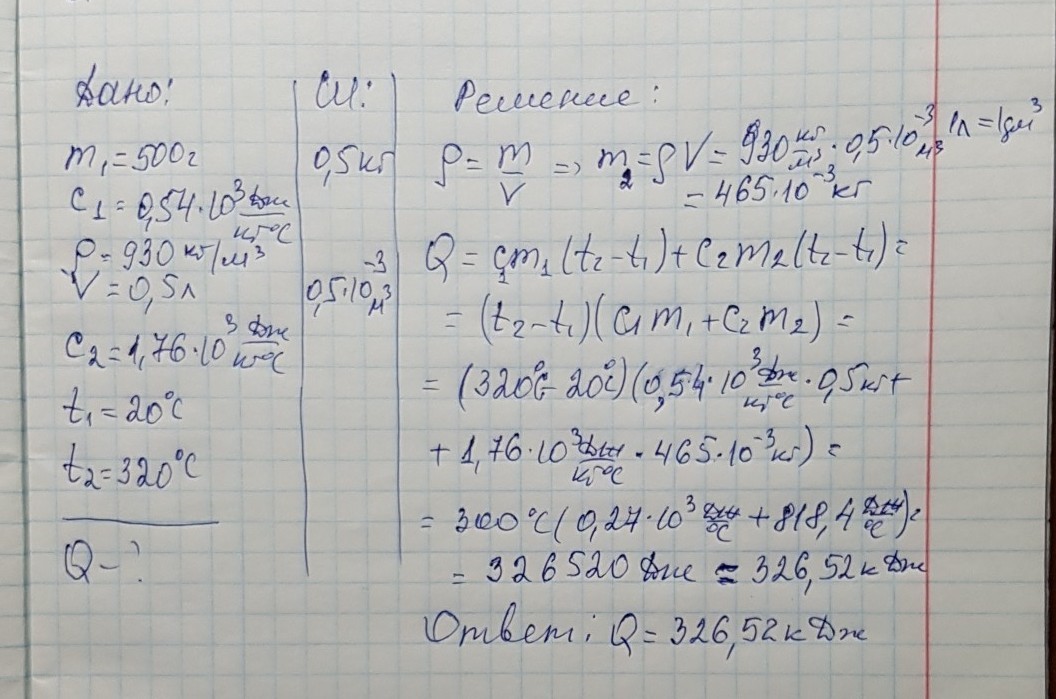 Дано:
m₁=500г
c₁=0,54·10³ Дж/кг°C
ρ=930 кг/м³
V=0,5л
c₂=1,76·10³ Дж/кг°C
t₁=20°C
t₂=320°C
Q-?
СИ:
0,5кг
0,5·10⁻³м³
Решение:
ρ=m/V => m₂=ρV=930 кг/м³·0,5·10⁻³м³ 1л=1дм³
=465·10⁻³кг
Q=c₁m₁(t₂-t₁)+c₂m₂(t₂-t₁)=
=(t₂-t₁)(c₁m₁+c₂m₂)=
=(320°C-20°C)(0,54·10³ Дж/кг°C·0,5кг+
+1,76·10³ Дж/кг°C·465·10⁻³кг)=
=300°C(0,27·10³ Дж/°C+818,4 Дж/°C)=
=326520Дж=326,52кДж
Ответ: Q=326,52кДж